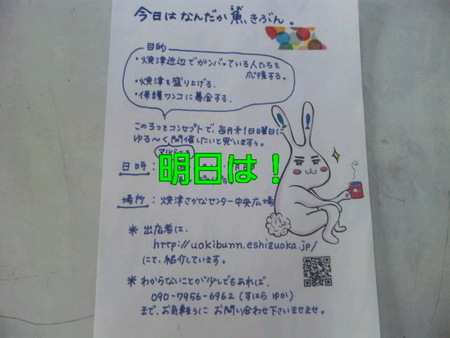 今日は なんだか 魚、きぶん。
目的
・焼津近辺でがンバっている人たちを
応援する。
・焼津を盛り上げる。
・保護ワンコに募金する。
この3つをコンセプトで、毎月第1日曜日に
ゆる〜く開催したいと思いますぅ。
マルシェを
日時:
明日は！
場所: 焼津さかなセンター中央広場
※ 出店者は、
http://uokibunn.eshizuoka.jp/
にて、紹介しています。
※ わからないことが少しでもあれば、
090-7956-6962 (すはら ゆか)
まで、お気軽うに お問い合わせ下さいませませ。